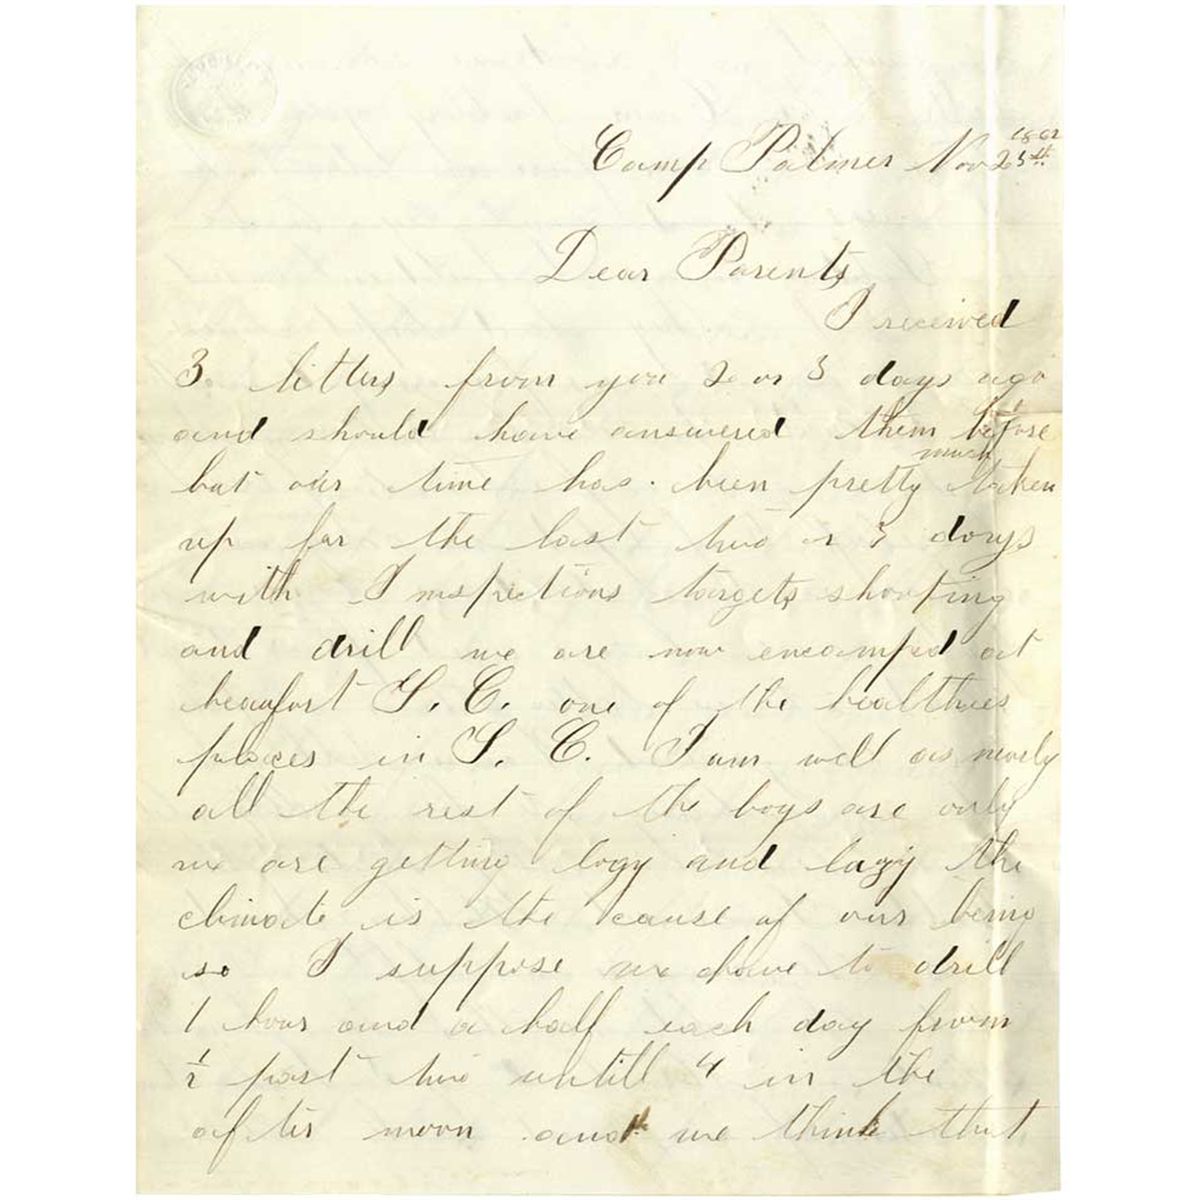 Camp Palmer Nov 25th 1862
Dear Parents,
I received
3. letters from you 2 or 3 days ago
and should have answered them before
but our time has been pretty much taken
up for the last two or 3 days
with Inspections targets shooting
and drill we are now encamped at
beaufort S. C. one of the healthies
places in S. C. I am well as nearly
all the rest of the boys are only
we are getting logy and lazy the
climate is the cause of our being
so I suppose we have to drill
1 hour and a half each day from
1/2 past two untill 4 in the
after noon and we think that